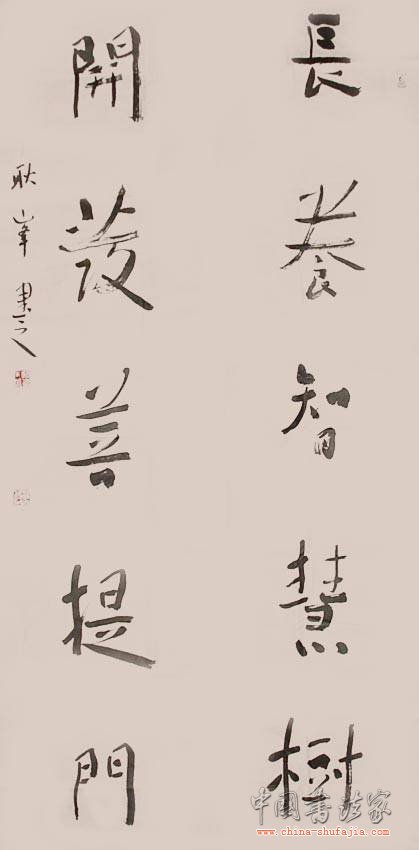 長養智慧樹
開發菩提門
耿峰書之
中国书法家
www.china-shufajia.com